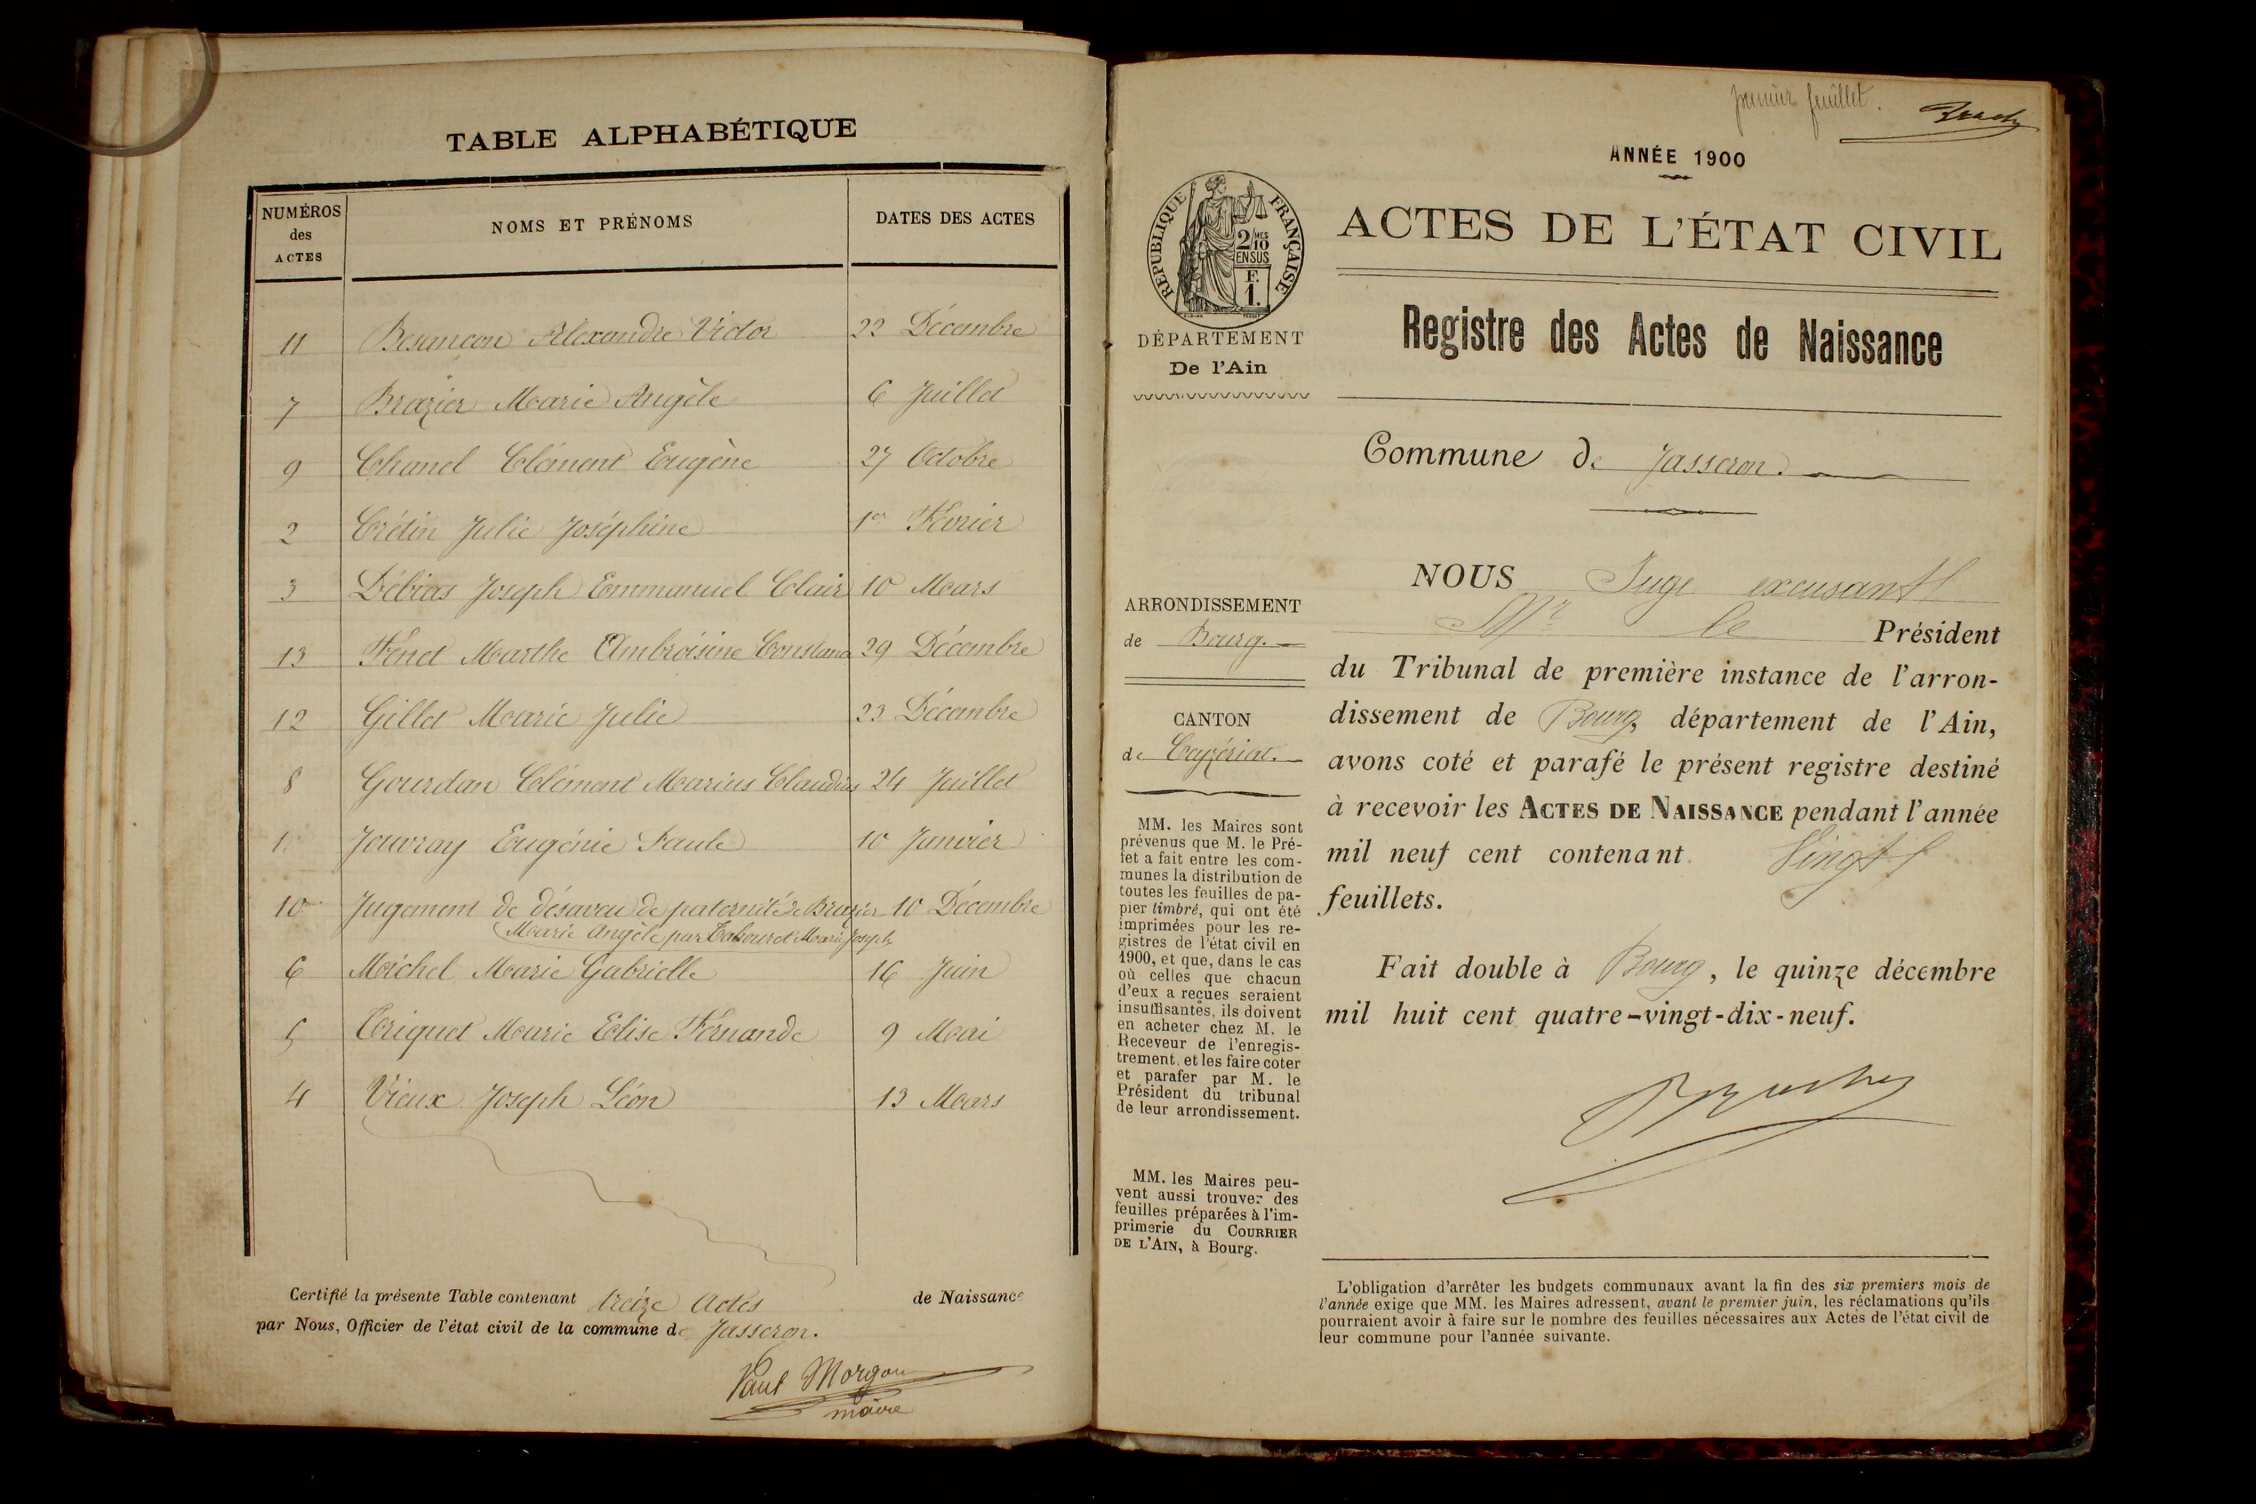 TABLE ALPHABÉTIQUE
NUMÉROS
des
ACTES
NOMS ET PRÉNOMS
DATES DES ACTES
11 Besançon Alexandre Victor 22 Décembre
7 Brazier Marie Angèle 6 Juillet
9 Chanel Clément Eugène 27 Octobre
2 Crétin Julie Joséphine 1er Février
3 Débias Joseph Emmanuel Clair 10 Mars
13 Fénet Marthe Ambroisine Constance 29 Décembre
12 Gillet Marie Julie 23 Décembre
8 Gourdan Clément Marius Claudius 24 Juillet
1 Jouvray Eugénie Paule 10 Janvier
10 Jugement de désaveu de paternité de Brazier 10 Décembre
Marie Angèle par Tabouret Marie Joseph
6 Michel Marie Gabrielle 16 Juin
5 Triquet Marie Elise Fernande 9 Mai
4 Vieux Joseph Léon 13 Mars
Certifié la présente Table contenant treize Actes de Naissance
par Nous, Officier de l'état civil de la commune de Jasseron.
Paul Morgon
maire
premier feuillet.
ANNÉE 1900
RÉPUBLIQUE FRANÇAISE
2/10 MES
EN SUS
F.
1.
DÉPARTEMENT
De l'Ain
ACTES DE L'ÉTAT CIVIL
Registre des Actes de Naissance
Commune de Jasseron.
ARRONDISSEMENT
de Bourg.
CANTON
de Ceyzériat.
MM. les Maires sont
prévenus que M. le Pré-
fet a fait entre les com-
munes la distribution de
toutes les feuilles de pa-
pier timbré, qui ont été
imprimées pour les re-
gistres de l'état civil en
1900, et que, dans le cas
où celles que chacun
d'eux a reçues seraient
insuffisantes, ils doivent
en acheter chez M. le
Receveur de l'enregis-
trement, et les faire coter
et parafer par M. le
Président du tribunal
de leur arrondissement.
MM. les Maires peu-
vent aussi trouver des
feuilles préparées à l'im-
primerie du COURRIER
DE L'AIN, à Bourg.
NOUS Juge excusant
Mr le Président
du Tribunal de première instance de l'arron-
dissement de Bourg, département de l'Ain,
avons coté et parafé le présent registre destiné
à recevoir les ACTES DE NAISSANCE pendant l'année
mil neuf cent contenant Vingt
feuillets.
Fait double à Bourg, le quinze décembre
mil huit cent quatre-vingt-dix-neuf.
L'obligation d'arrêter les budgets communaux avant la fin des six premiers mois de
l'année exige que MM. les Maires adressent, avant le premier juin, les réclamations qu'ils
pourraient avoir à faire sur le nombre des feuilles nécessaires aux Actes de l'état civil de
leur commune pour l'année suivante.